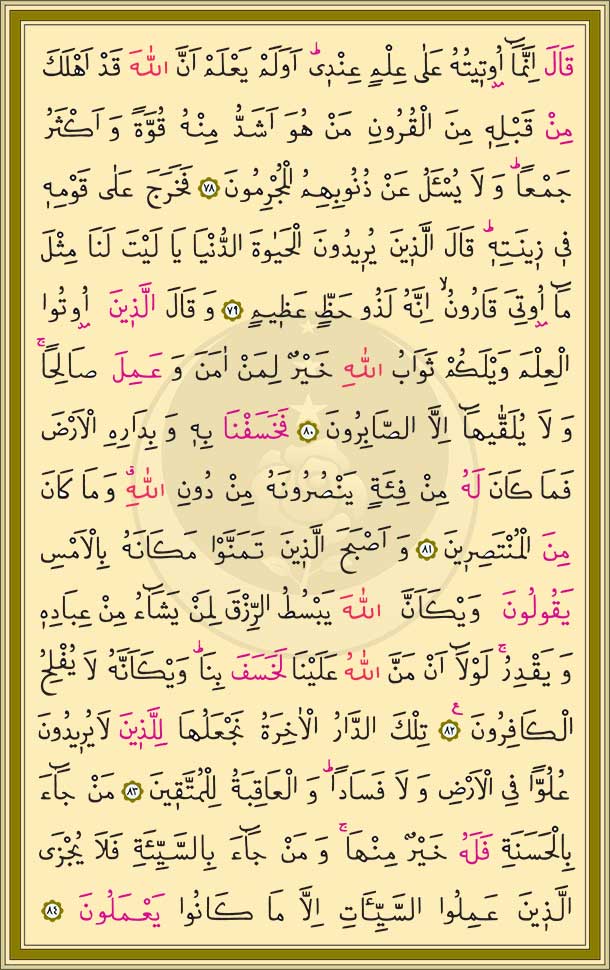 قَالَ اِنَّمَٓا اُو۫ت۪يتُهُ عَلٰى عِلْمٍ عِنْد۪يۜ اَوَلَمْ يَعْلَمْ اَنَّ اللّٰهَ قَدْ اَهْلَكَ
مِنْ قَبْلِه۪ مِنَ الْقُرُونِ مَنْ هُوَ اَشَدُّ مِنْهُ قُوَّةً وَ اَكْثَرُ
جَمْعاًۜ وَ لَا يُسْـَٔلُ عَنْ ذُنُوبِهِمُ الْمُجْرِمُونَ ﴿٧٨﴾ فَخَرَجَ عَلٰى قَوْمِه۪
ف۪ي ز۪ينَتِه۪ۜ قَالَ الَّذ۪ينَ يُر۪يدُونَ الْحَيٰوةَ الدُّنْيَا يَا لَيْتَ لَنَا مِثْلَ
مَٓا اُو۫تِيَ قَارُونُۙ اِنَّهُ لَذُو حَظٍّ عَظ۪يمٍ ﴿٧٩﴾ وَ قَالَ الَّذ۪ينَ اُو۫تُوا
الْعِلْمَ وَيْلَكُمْ ثَوَابُ اللّٰهِ خَيْرٌ لِمَنْ اٰمَنَ وَ عَمِلَ صَالِحاًۚ
وَ لَا يُلَقّٰيهَٓا اِلَّا الصَّابِرُونَ ﴿٨٠﴾ فَخَسَفْنَا بِه۪ وَ بِدَارِهِ الْاَرْضَ
فَمَا كَانَ لَهُ مِنْ فِئَةٍ يَنْصُرُونَهُ مِنْ دُونِ اللّٰهِۗ وَ مَا كَانَ
مِنَ الْمُنْتَصِر۪ينَ ﴿٨١﴾ وَ اَصْبَحَ الَّذ۪ينَ تَمَنَّوْا مَكَانَهُ بِالْاَمْسِ
يَقُولُونَ وَيْكَاَنَّ اللّٰهَ يَبْسُطُ الرِّزْقَ لِمَنْ يَشَٓاءُ مِنْ عِبَادِه۪
وَ يَقْدِرُۚ لَوْلَٓا اَنْ مَنَّ اللّٰهُ عَلَيْنَا لَخَسَفَ بِنَاۜ وَيْكَاَنَّهُ لَا يُفْلِحُ
الْكَافِرُونَ ﴿٨٢﴾ تِلْكَ الدَّارُ الْاٰخِرَةُ نَجْعَلُهَا لِلَّذ۪ينَ لَا يُر۪يدُونَ
عُلُوًّا فِي الْاَرْضِ وَ لَا فَسَاداًۜ وَ الْعَاقِبَةُ لِلْمُتَّق۪ينَ ﴿٨٣﴾ مَنْ جَٓاءَ
بِالْحَسَنَةِ فَلَهُ خَيْرٌ مِنْهَاۚ وَ مَنْ جَٓاءَ بِالسَّيِّئَةِ فَلَا يُجْزَى
الَّذ۪ينَ عَمِلُوا السَّيِّـَٔاتِ اِلَّا مَا كَانُوا يَعْمَلُونَ ﴿٨٤﴾